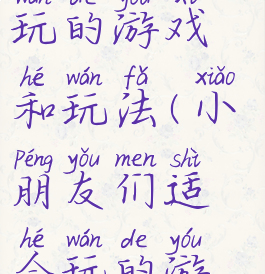 wán de yóu xì
玩的游戏
hé wán fǎ xiǎo
和玩法(小
péng yǒu men shì
朋友们适
hé wán de yóu
合玩的游